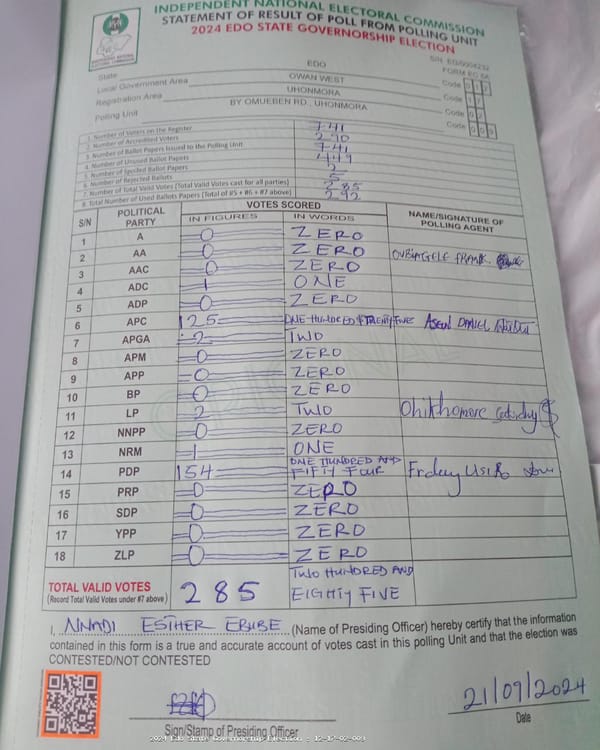 INDEPENDENT NATIONAL ELECTORAL COMMISSION
STATEMENT OF RESULT OF POLL FROM POLLING UNIT
2024 EDO STATE GOVERNORSHIP ELECTION
FORM EC 8A
State EDO Code
Local Government Area OWAN WEST Code
Registration Area UHONMORA Code
Polling Unit BY OMUEBEN RD., UHONMORA Code
1. Number of Voters on the Register 741
2. Number of Accredited Voters 290
3. Number of Ballot Papers Issued to the Polling Unit 741
4. Number of Unused Ballot Papers 449
5. Number of Spoiled Ballot Papers 2
6. Number of Rejected Ballots 5
7. Number of Total Valid Votes (Total Valid Votes cast for all parties) 285
8. Total Number of Used Ballots Papers (Total of #5 + #6 + #7 above) 292
S/N POLITICAL PARTY VOTES SCORED NAME/SIGNATURE OF POLLING AGENT
IN FIGURES IN WORDS
1 A 0 ZERO
2 AA 0 ZERO
3 AAC 0 ZERO
4 ADC 1 ONE
5 ADP 0 ZERO
6 APC 125 ONE HUNDRED & TWENTY FIVE DANIEL
7 APGA 2 TWO
8 APM 0 ZERO
9 APP 0 ZERO
10 BP 0 ZERO
11 LP 2 TWO
12 NNPP 0 ZERO
13 NRM 1 ONE
14 PDP 154 ONE HUNDRED AND FIFTY FOUR
15 PRP 0 ZERO
16 SDP 0 ZERO
17 YPP 0 ZERO
18 ZLP 0 ZERO
TOTAL VALID VOTES 285 TWO HUNDRED AND
(Record Total Valid Votes under #7 above) EIGHTY FIVE
I, NNADI ESTHER EBUBE (Name of Presiding Officer) hereby certify that the information
contained in this form is a true and accurate account of votes cast in this polling Unit and that the election was
CONTESTED/NOT CONTESTED
21/09/2024
Sign/Stamp of Presiding Officer Date
2024 Edo State Governorship Election : 12-17-02-009